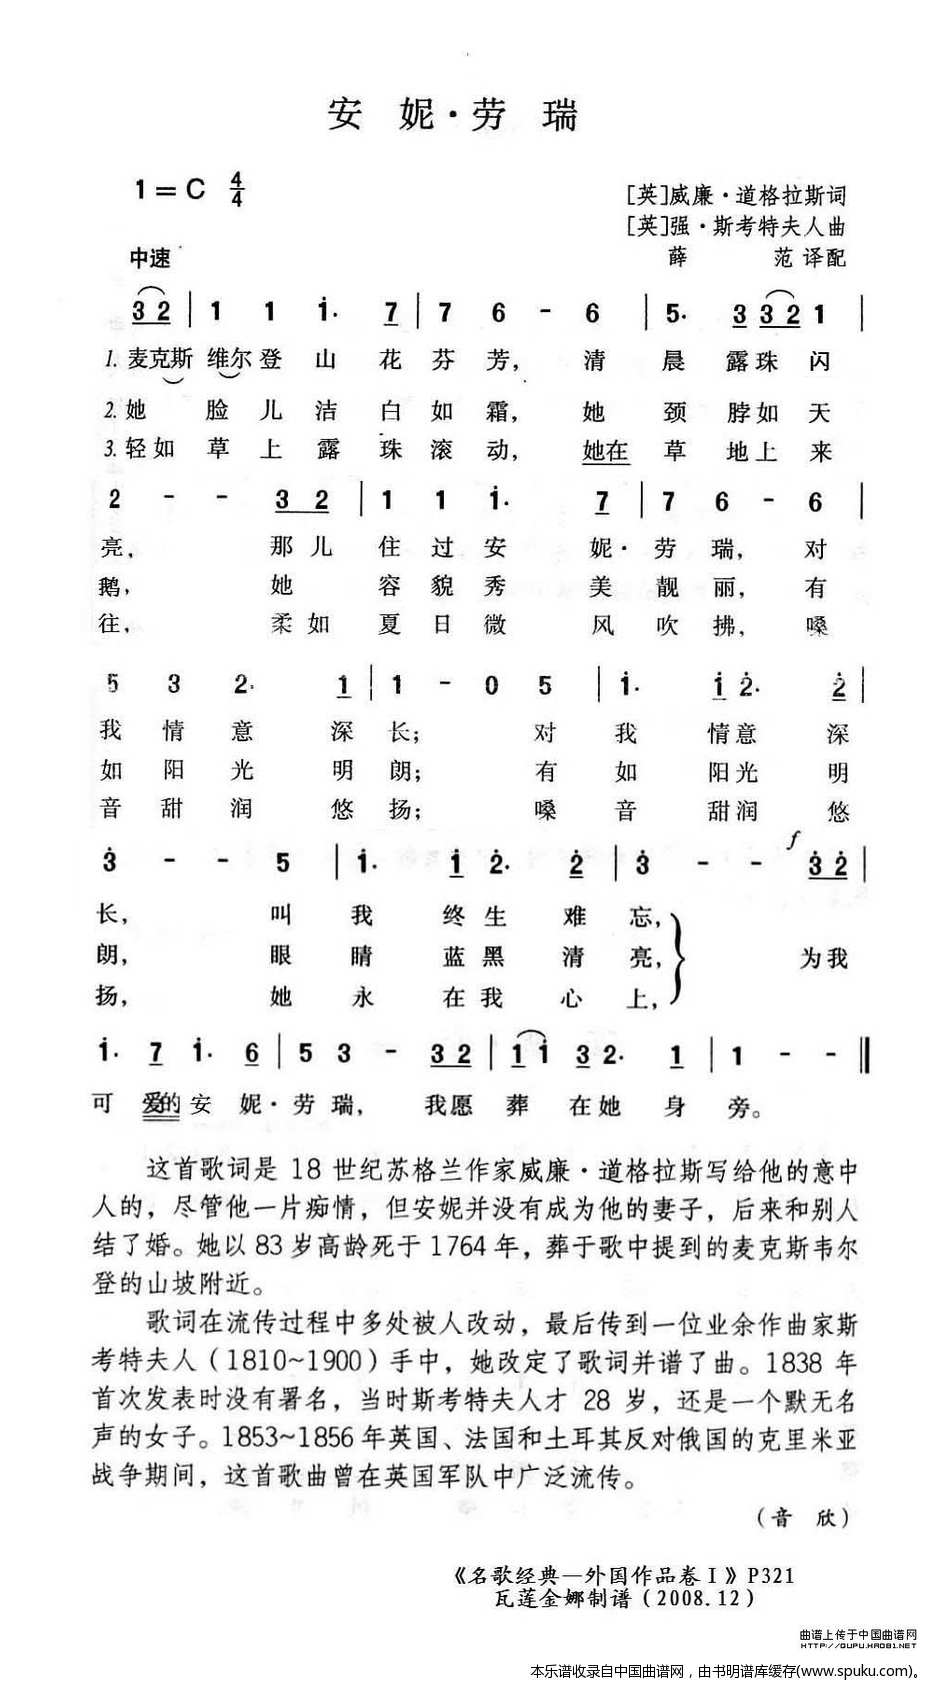 安 妮·劳 瑞
1=C 4/4
[英]威廉·道格拉斯词
[英]强·斯考特夫人曲
中速
薛 范 译配
3 2 | 1 1 i· 7 | 7 6 - 6 | 5· 3 3 2 1 |
1.麦克斯 维尔登 山 花 芬 芳， 清 晨 露珠 闪
2.她 脸 儿 洁 白 如 霜， 她 颈 脖如 天
3.轻如 草 上 露 珠 滚 动， 她在 草 地上 来
2 - - 3 2 | 1 1 i· 7 | 7 6 - 6 |
亮， 那儿 住 过 安 妮· 劳 瑞， 对
鹅， 她 容 貌 秀 美 靓 丽， 有
往， 柔如 夏 日 微 风 吹 拂， 嗓
5 3 2· 1 | 1 - 0 5 | i· i 2̇· 2̇ |
我 情 意 深 长； 对 我 情意 深
如 阳 光 明 朗； 有 如 阳光 明
音 甜 润 悠 扬； 嗓 音 甜润 悠
f
3̇ - - 5 | i· i 2̇· 2̇ | 3̇ - - 3̇ 2̇ |
长， 叫 我 终 生 难 忘，
朗， 眼 睛 蓝 黑 清 亮， 为我
扬， 她 永 在 我 心 上，
i· 7 i· 6 | 5 3 - 3 2 | 1 1 3 2· 1 | 1 - - ‖
可 爱的 安 妮· 劳 瑞， 我愿 葬 在她 身 旁。
这首歌词是 18 世纪苏格兰作家威廉·道格拉斯写给他的意中
人的，尽管他一片痴情，但安妮并没有成为他的妻子，后来和别人
结了婚。她以 83 岁高龄死于 1764 年，葬于歌中提到的麦克斯韦尔
登的山坡附近。
歌词在流传过程中多处被人改动，最后传到一位业余作曲家斯
考特夫人（1810~1900）手中，她改定了歌词并谱了曲。1838 年
首次发表时没有署名，当时斯考特夫人才 28 岁，还是一个默无名
声的女子。1853~1856 年英国、法国和土耳其反对俄国的克里米亚
战争期间，这首歌曲曾在英国军队中广泛流传。
（音 欣）
《名歌经典—外国作品卷Ⅰ》P321
瓦莲金娜制谱（2008.12）
曲谱上传于中国曲谱网
HTTP://QUPU.HAO81.NET
本乐谱收录自中国曲谱网，由书明谱库缓存(www.spuku.com)。